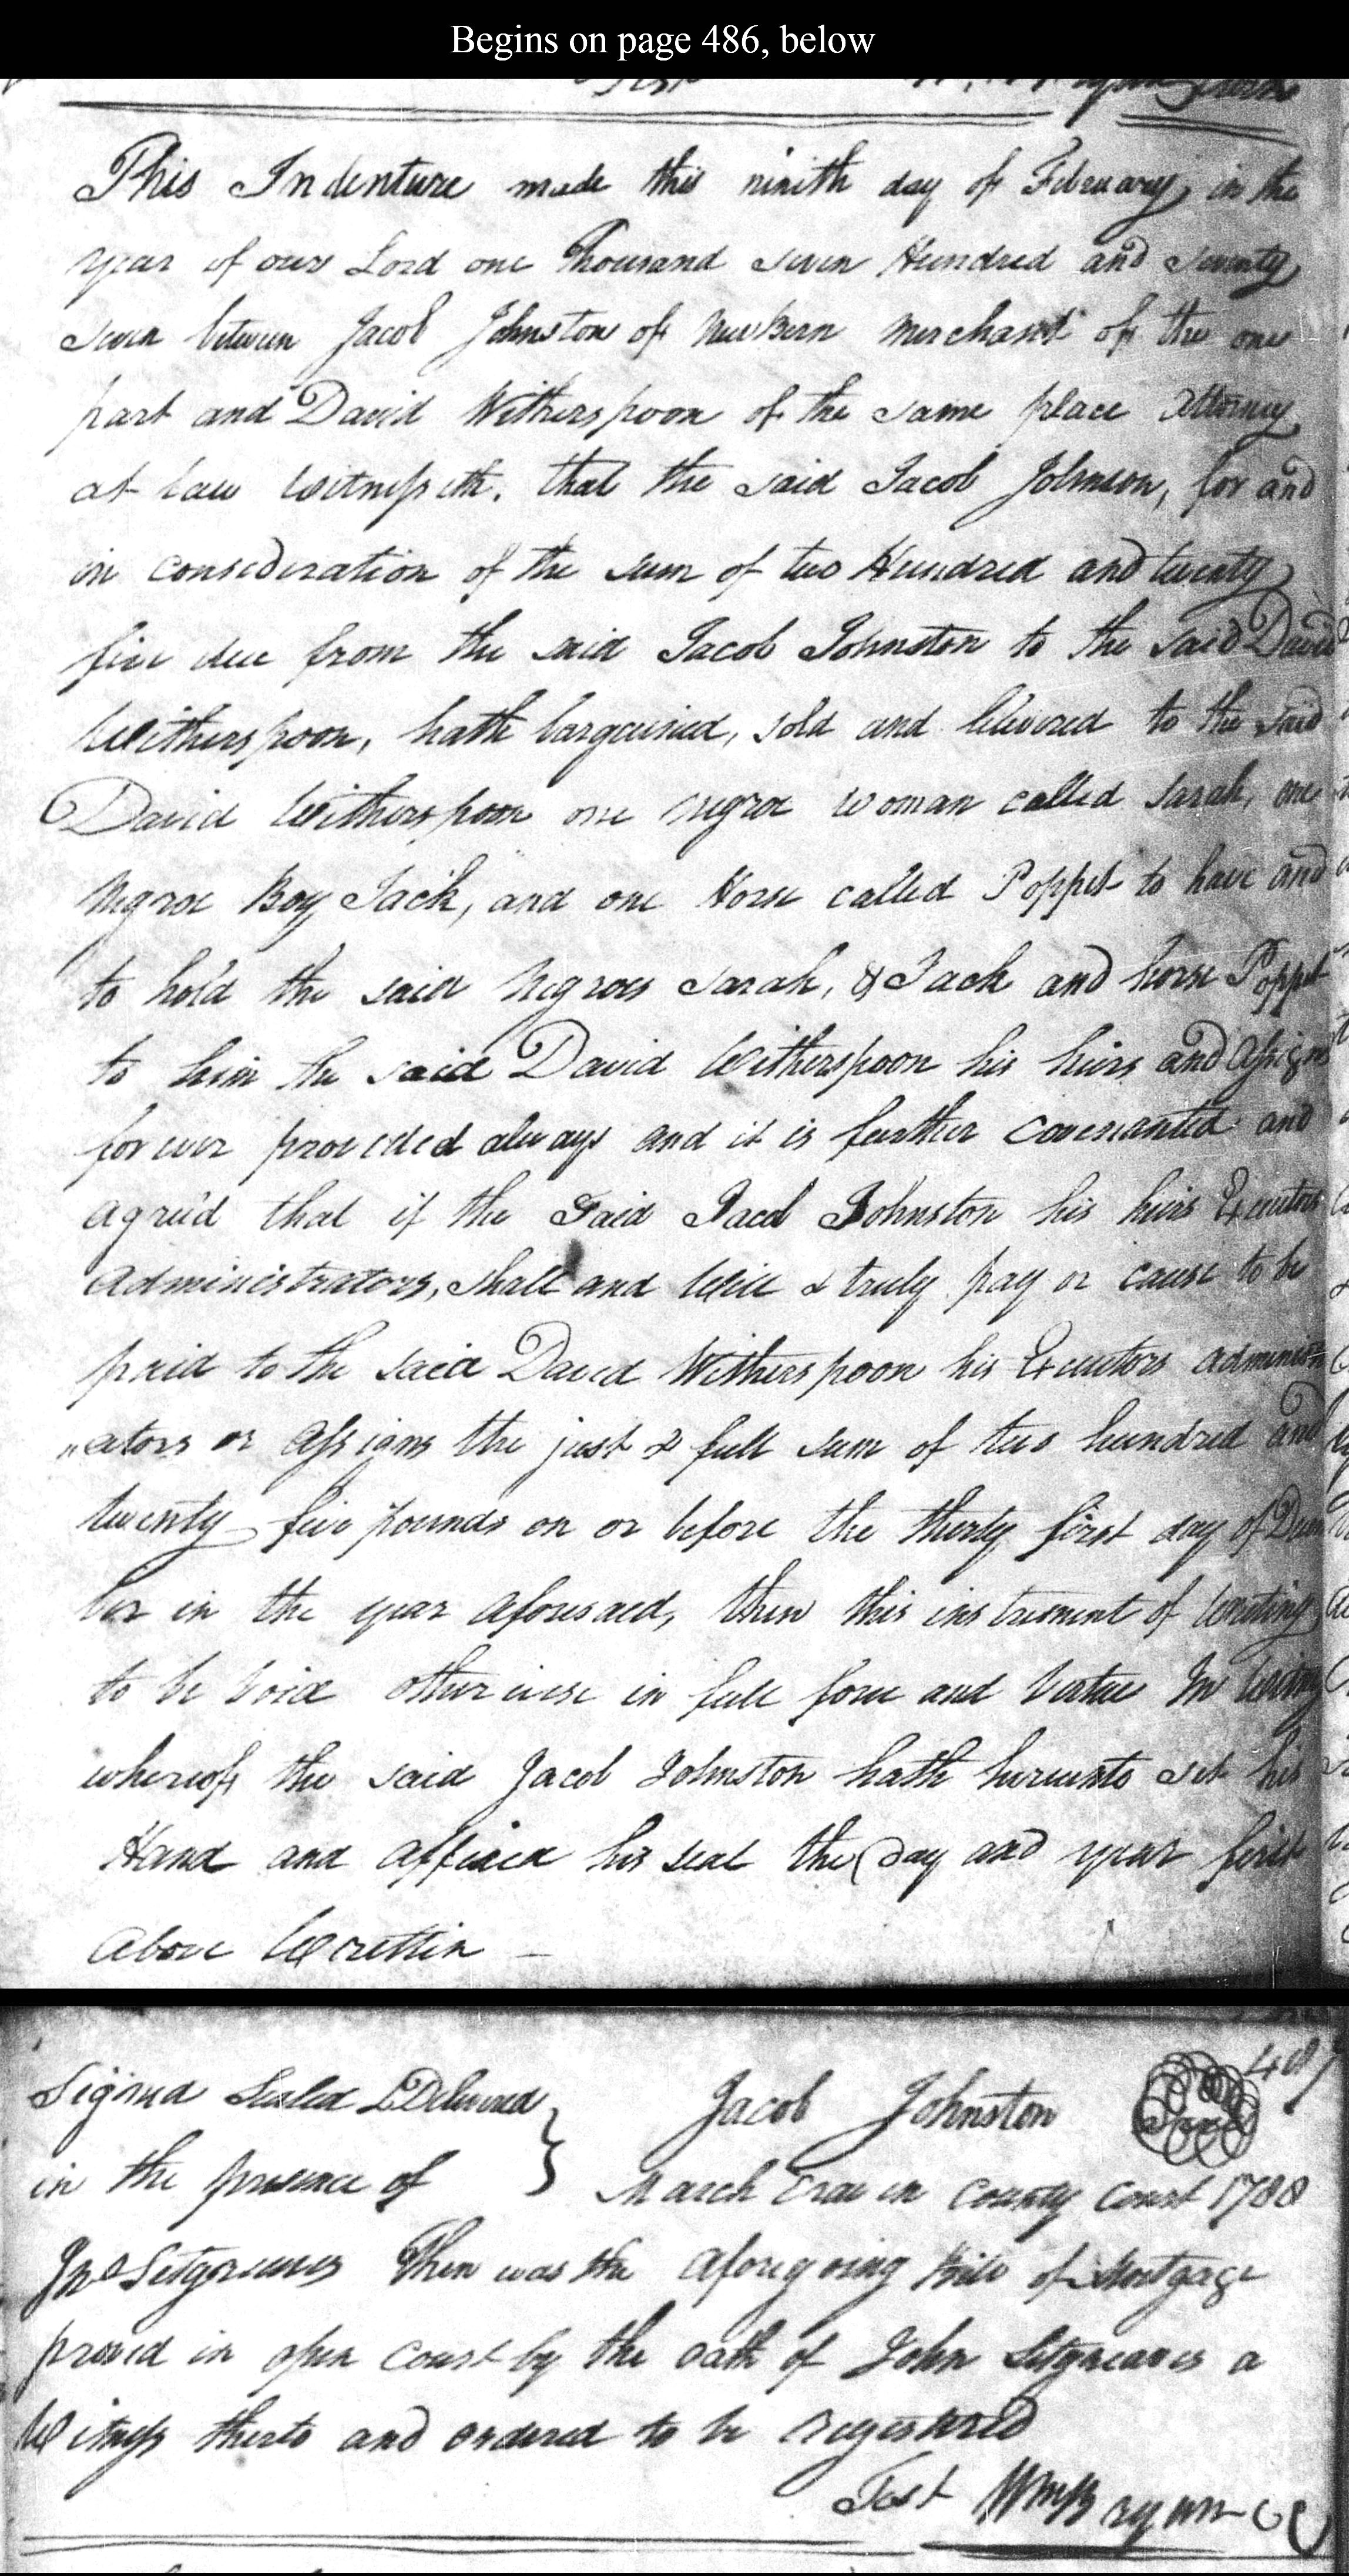 Begins on page 486, below
This Indenture made this ninith day of February in the
year of our Lord one Thousand seven Hundred and seventy
seven between Jacob Johnston of NewBern Merchant of the one
part and David Witherspoon of the same place Attorney
at Law Witnesseth, that the said Jacob Johnson, for and
in consideration of the sum of two Hundred and twenty
five due from the said Jacob Johnston to the said David
Witherspoon, hath bargained, sold and delivered to the said
David Witherspoon one negroe woman called Sarah, one
Negroe Boy Jack, and one Horse called Poppet to have and
to hold the said Negroes Sarah, & Jack and horse Poppet
to him the said David Witherspoon his heirs and assigns
for ever provided always and it is further covenanted and
agreed that if the Said Jacob Johnston his heirs Executors
Administrators, shall and Will & truly pay or cause to be
paid to the said David Witherspoon his Executors administr
"ators or assigns the just & full sum of two hundred and
twenty five pounds on or before the thirty first day of Decem
ber in the year aforesaid, then this instrument of Writing
to be void otherwise in full force and Virtue In Witness
whereof the said Jacob Johnston hath hereunto set his
Hand and affixed his seal the day and year first
above Written —
487
Signed Sealed & Delivered } Jacob Johnston Seal
in the presence of March Craven County Court 1788
Jno Sitgreaves Then was the aforegoing Bill of Mortgage
proved in open Court by the oath of John Sitgreaves a
Witness thereto and ordered to be registered
Test Wm Bryan CC